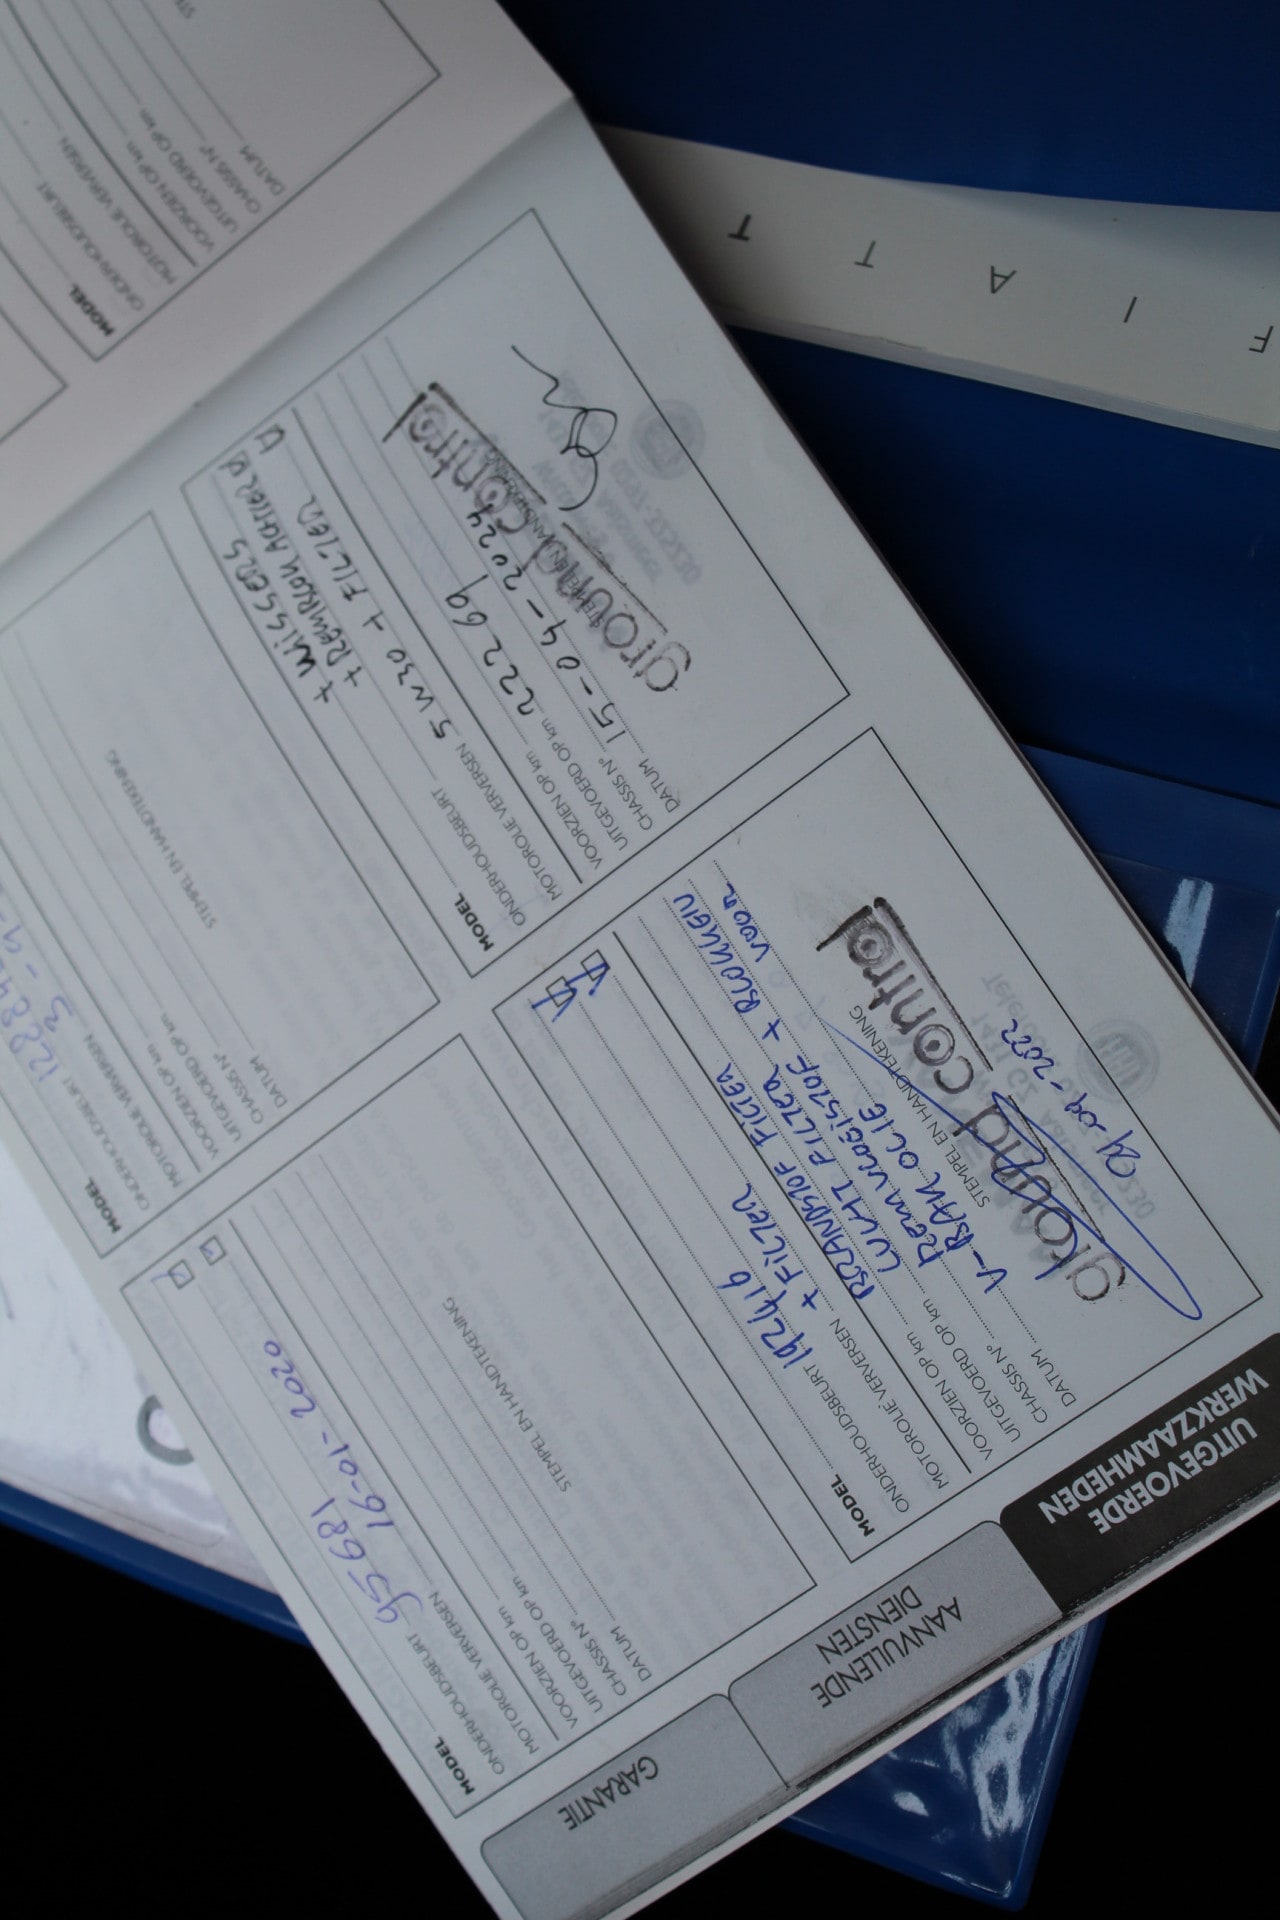 FIATT
UITGEVOERDE
WERKZAAMHEDEN
AANVULLENDE
DIENSTEN
GARANTIE
MODEL
ONDERHOUDSBEURT 192416
MOTOROLIE VERVERSEN + FILTER
VOORZIEN OP km BRANDSTOF FILTER
UITGEVOERD OP km LUCHT FILTER +
CHASSIS N° REMVLOEISTOF +
DATUM V-BAK OLIE
VOOR
STEMPEL EN HANDTEKENING
ground control
04-04-2022
MODEL
ONDERHOUDSBEURT
+ WISSERS
MOTOROLIE VERVERSEN 5W30 + FILTER
VOORZIEN OP km
UITGEVOERD OP km 222 69
CHASSIS N°
DATUM 15-04-2024
STEMPEL EN HANDTEKENING
ground control
MODEL
ONDERHOUDSBEURT
MOTOROLIE VERVERSEN
VOORZIEN OP km
UITGEVOERD OP km
CHASSIS N°
DATUM
STEMPEL EN HANDTEKENING
MODEL
ONDERHOUDSBEURT 95681
MOTOROLIE VERVERSEN 16-01-2020
VOORZIEN OP km
UITGEVOERD OP km
CHASSIS N°
DATUM
STEMPEL EN HANDTEKENING
MODEL
ONDERHOUDSBEURT
MOTOROLIE VERVERSEN
VOORZIEN OP km
UITGEVOERD OP km
CHASSIS N°
DATUM